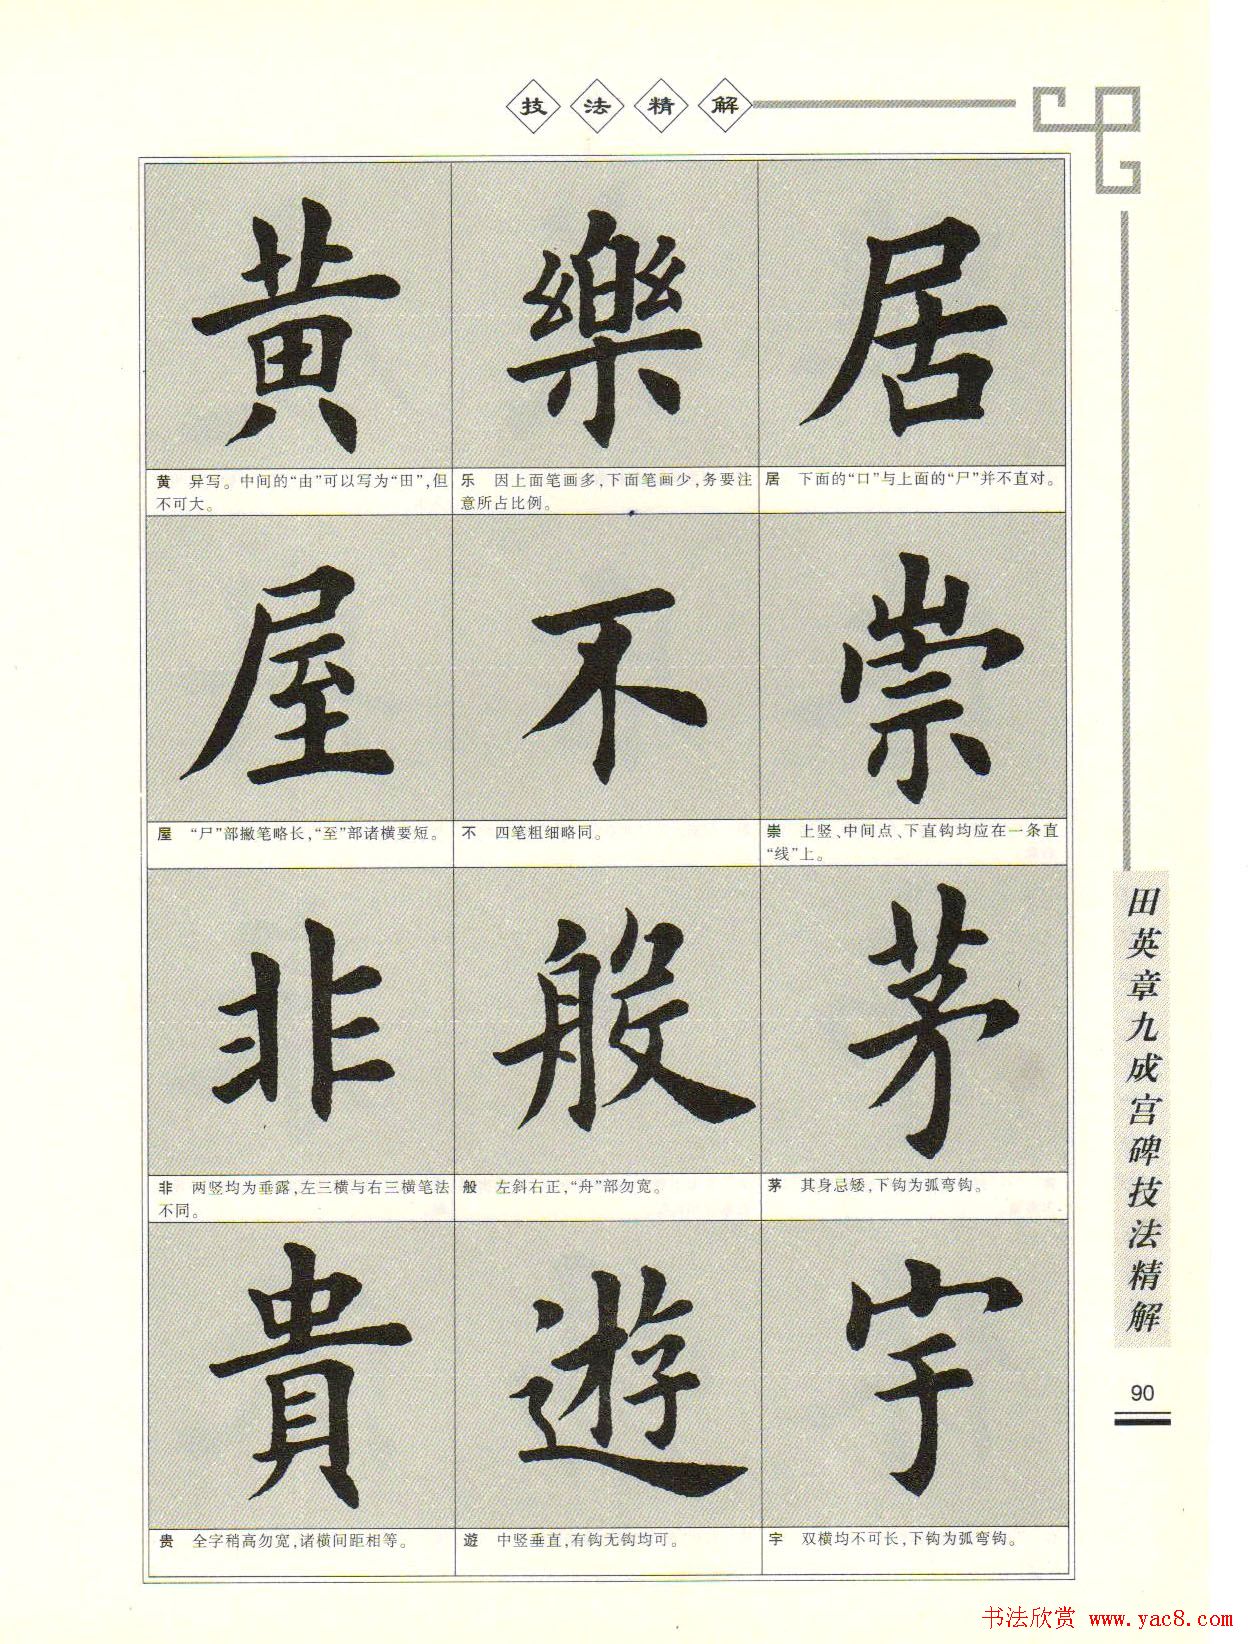 技法精解
黄 樂 居
黄 异写。中间的“由”可以写为“田”,但
不可大。
乐 因上面笔画多,下面笔画少,务要注
意所占比例。
居 下面的“口”与上面的“尸”并不直对。
屋 不 崇
屋 “尸”部撇笔略长,“至”部诸横要短。
不 四笔粗细略同。
崇 上竖、中间点、下直钩均应在一条直
“线”上。
非 般 茅
非 两竖均为垂露,左三横与右三横笔法
不同。
般 左斜右正,“舟”部勿宽。
茅 其身忌矮,下钩为弧弯钩。
貴 遊 宇
贵 全字稍高勿宽,诸横间距相等。
遊 中竖垂直,有钩无钩均可。
宇 双横均不可长,下钩为弧弯钩。
田英章九成宫碑技法精解
90
书法欣赏 www.yac8.com